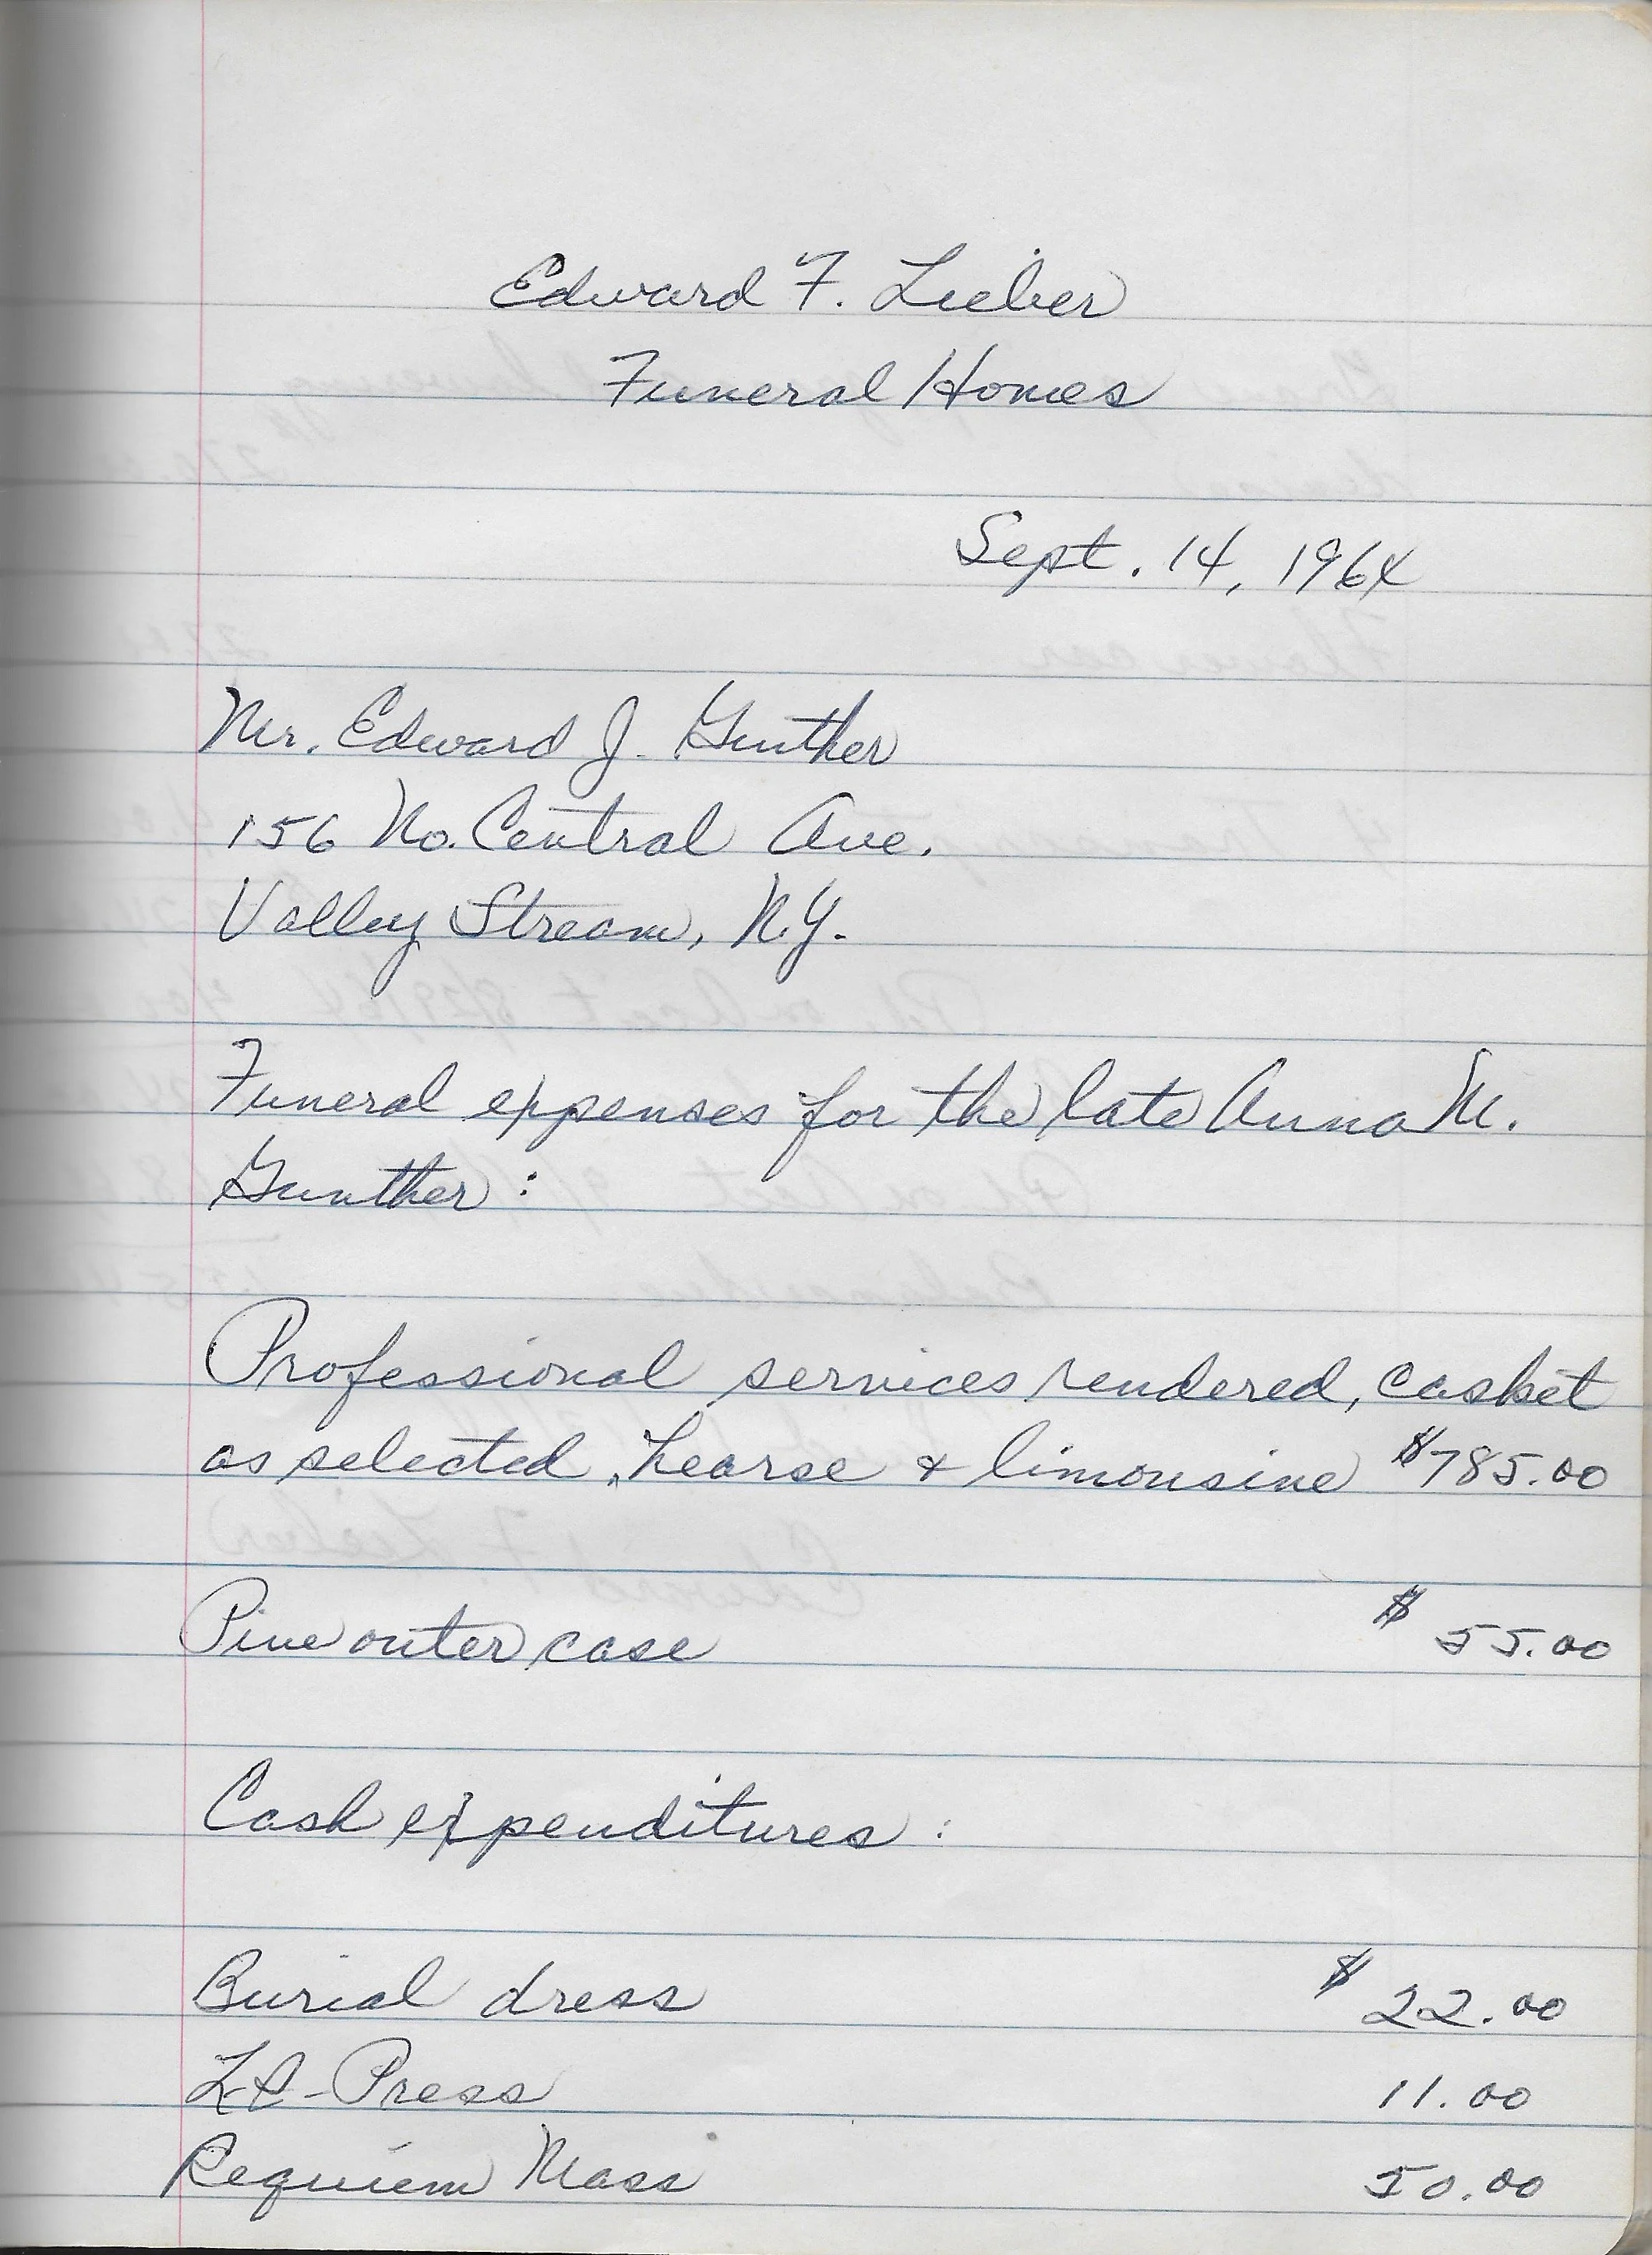 Edward F. Lieber
Funeral Homes
Sept. 14, 1964
Mr. Edward J. Gunther
156 No. Central Ave.
Valley Stream, N.Y.
Funeral expenses for the late Anna M.
Gunther :
Professional services rendered, casket
as selected, hearse & limousine $785.00
Pine outer case $55.00
Cash expenditures :
Burial dress $22.00
L-I-Press 11.00
Requiem Mass 50.00